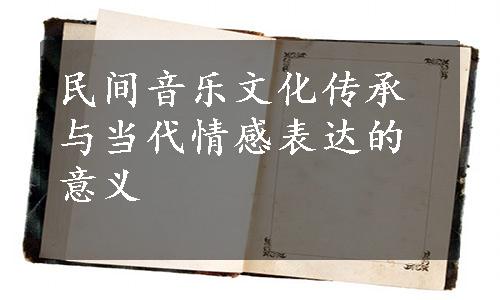 民间音乐文化传承
与当代情感表达的
意义